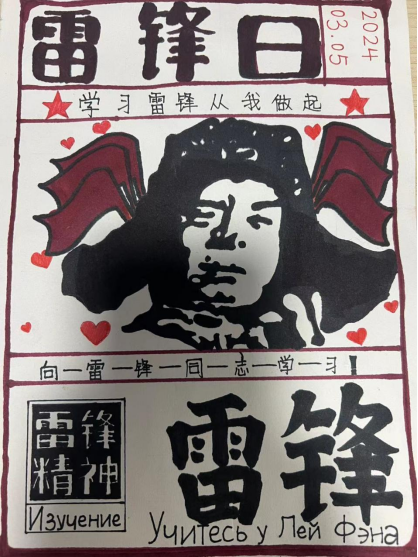 雷锋日
2024
03.05
学习雷锋从我做起
向一雷一锋一同一志一学一习!
雷锋
精神
Изучение
雷锋
Учитесь у Лей Фэна